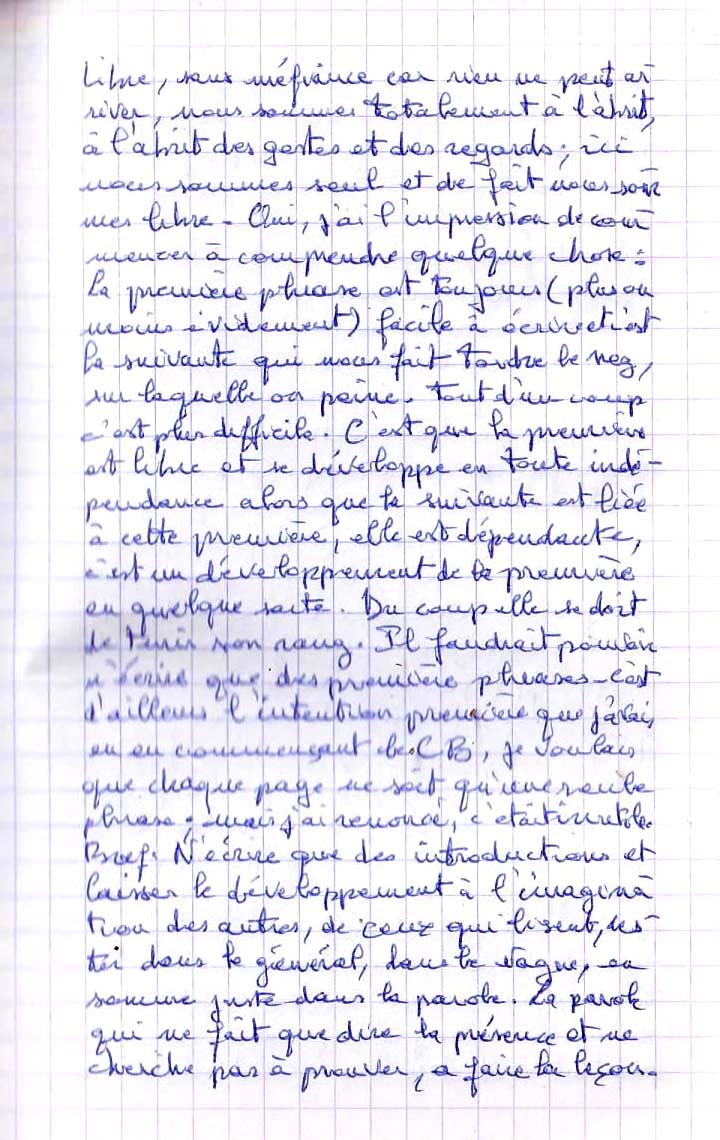 libre, sans méfiance car rien ne peut ar
river, nous sommes totalement à l'abrit,
à l'abrit des gestes et des regards ; ici
nous sommes seul et de fait nous som
mes libre - Oui, j'ai l'impression de com
mencer à comprendre quelque chose :
la première phrase est toujours (plus ou
moins évidement) facile à écrire c'est
la suivante qui nous fait tordre le nez,
sur laquelle on peine. Tout d'un coup
c'est plus difficile. C'est que la première
est libre et se développe en toute indé-
pendance alors que la suivante est liée
à cette première, elle est dépendante,
c'est un développement de la première
en quelque sorte. Du coup elle se doit
de tenir son rang. Il faudrait pouvoir
n'écrire que des première phrases - c'est
d'ailleurs l'intention première que j'avais
eu en commençant le CB, je voulais
que chaque page ne soit qu'une seule
phrase ; mais j'ai renoncé, c'était
Bref. N'écrire que des introductions et
laisser le développement à l'imagina
tion des autres, de ceux qui lisent, res
ter dans le général, dans le vague, en
somme juste dans la parole. La parole
qui ne fait que dire la présence et ne
cherche pas à prouver, a faire la leçon.